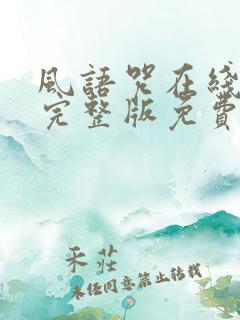 風語咒在綫
完整版免費
禾莊
未經同意禁止轉載